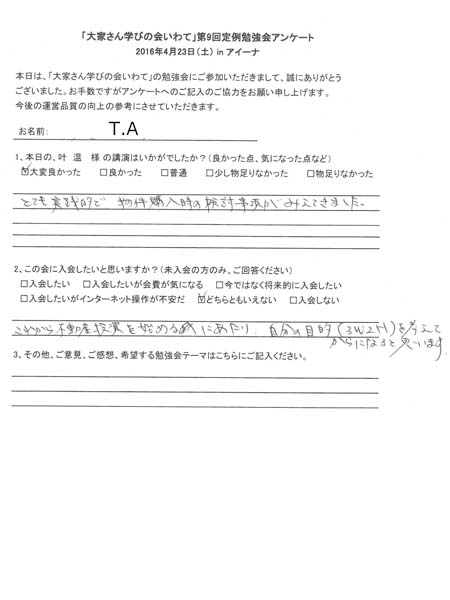 「大家さん学びの会いわて」第9回定例勉強会アンケート
2016年4月23日(土) in アイーナ
本日は、「大家さん学びの会いわて」の勉強会にご参加いただきまして、誠にありがとう
ございました。お手数ですがアンケートへのご記入のご協力をお願い申し上げます。
今後の運営品質の向上の参考にさせていただきます。
お名前: T.A
1、本日の、叶 温 様 の講演はいかがでしたか?(良かった点、気になった点など)
☑大変良かった □良かった □普通 □少し物足りなかった □物足りなかった
とても実践的で、物件購入時の検討事項がみえてきました。
2、この会に入会したいと思いますか?(未入会の方のみ、ご回答ください)
□入会したい □入会したいが会費が気になる □今ではなく将来的に入会したい
□入会したいがインターネット操作が不安だ ☑どちらともいえない □入会しない
これから不動産投資を始めるにあたり、自分の目的(3W2H)を考えて
からになると思います。
3、その他、ご意見、ご感想、希望する勉強会テーマはこちらにご記入ください。